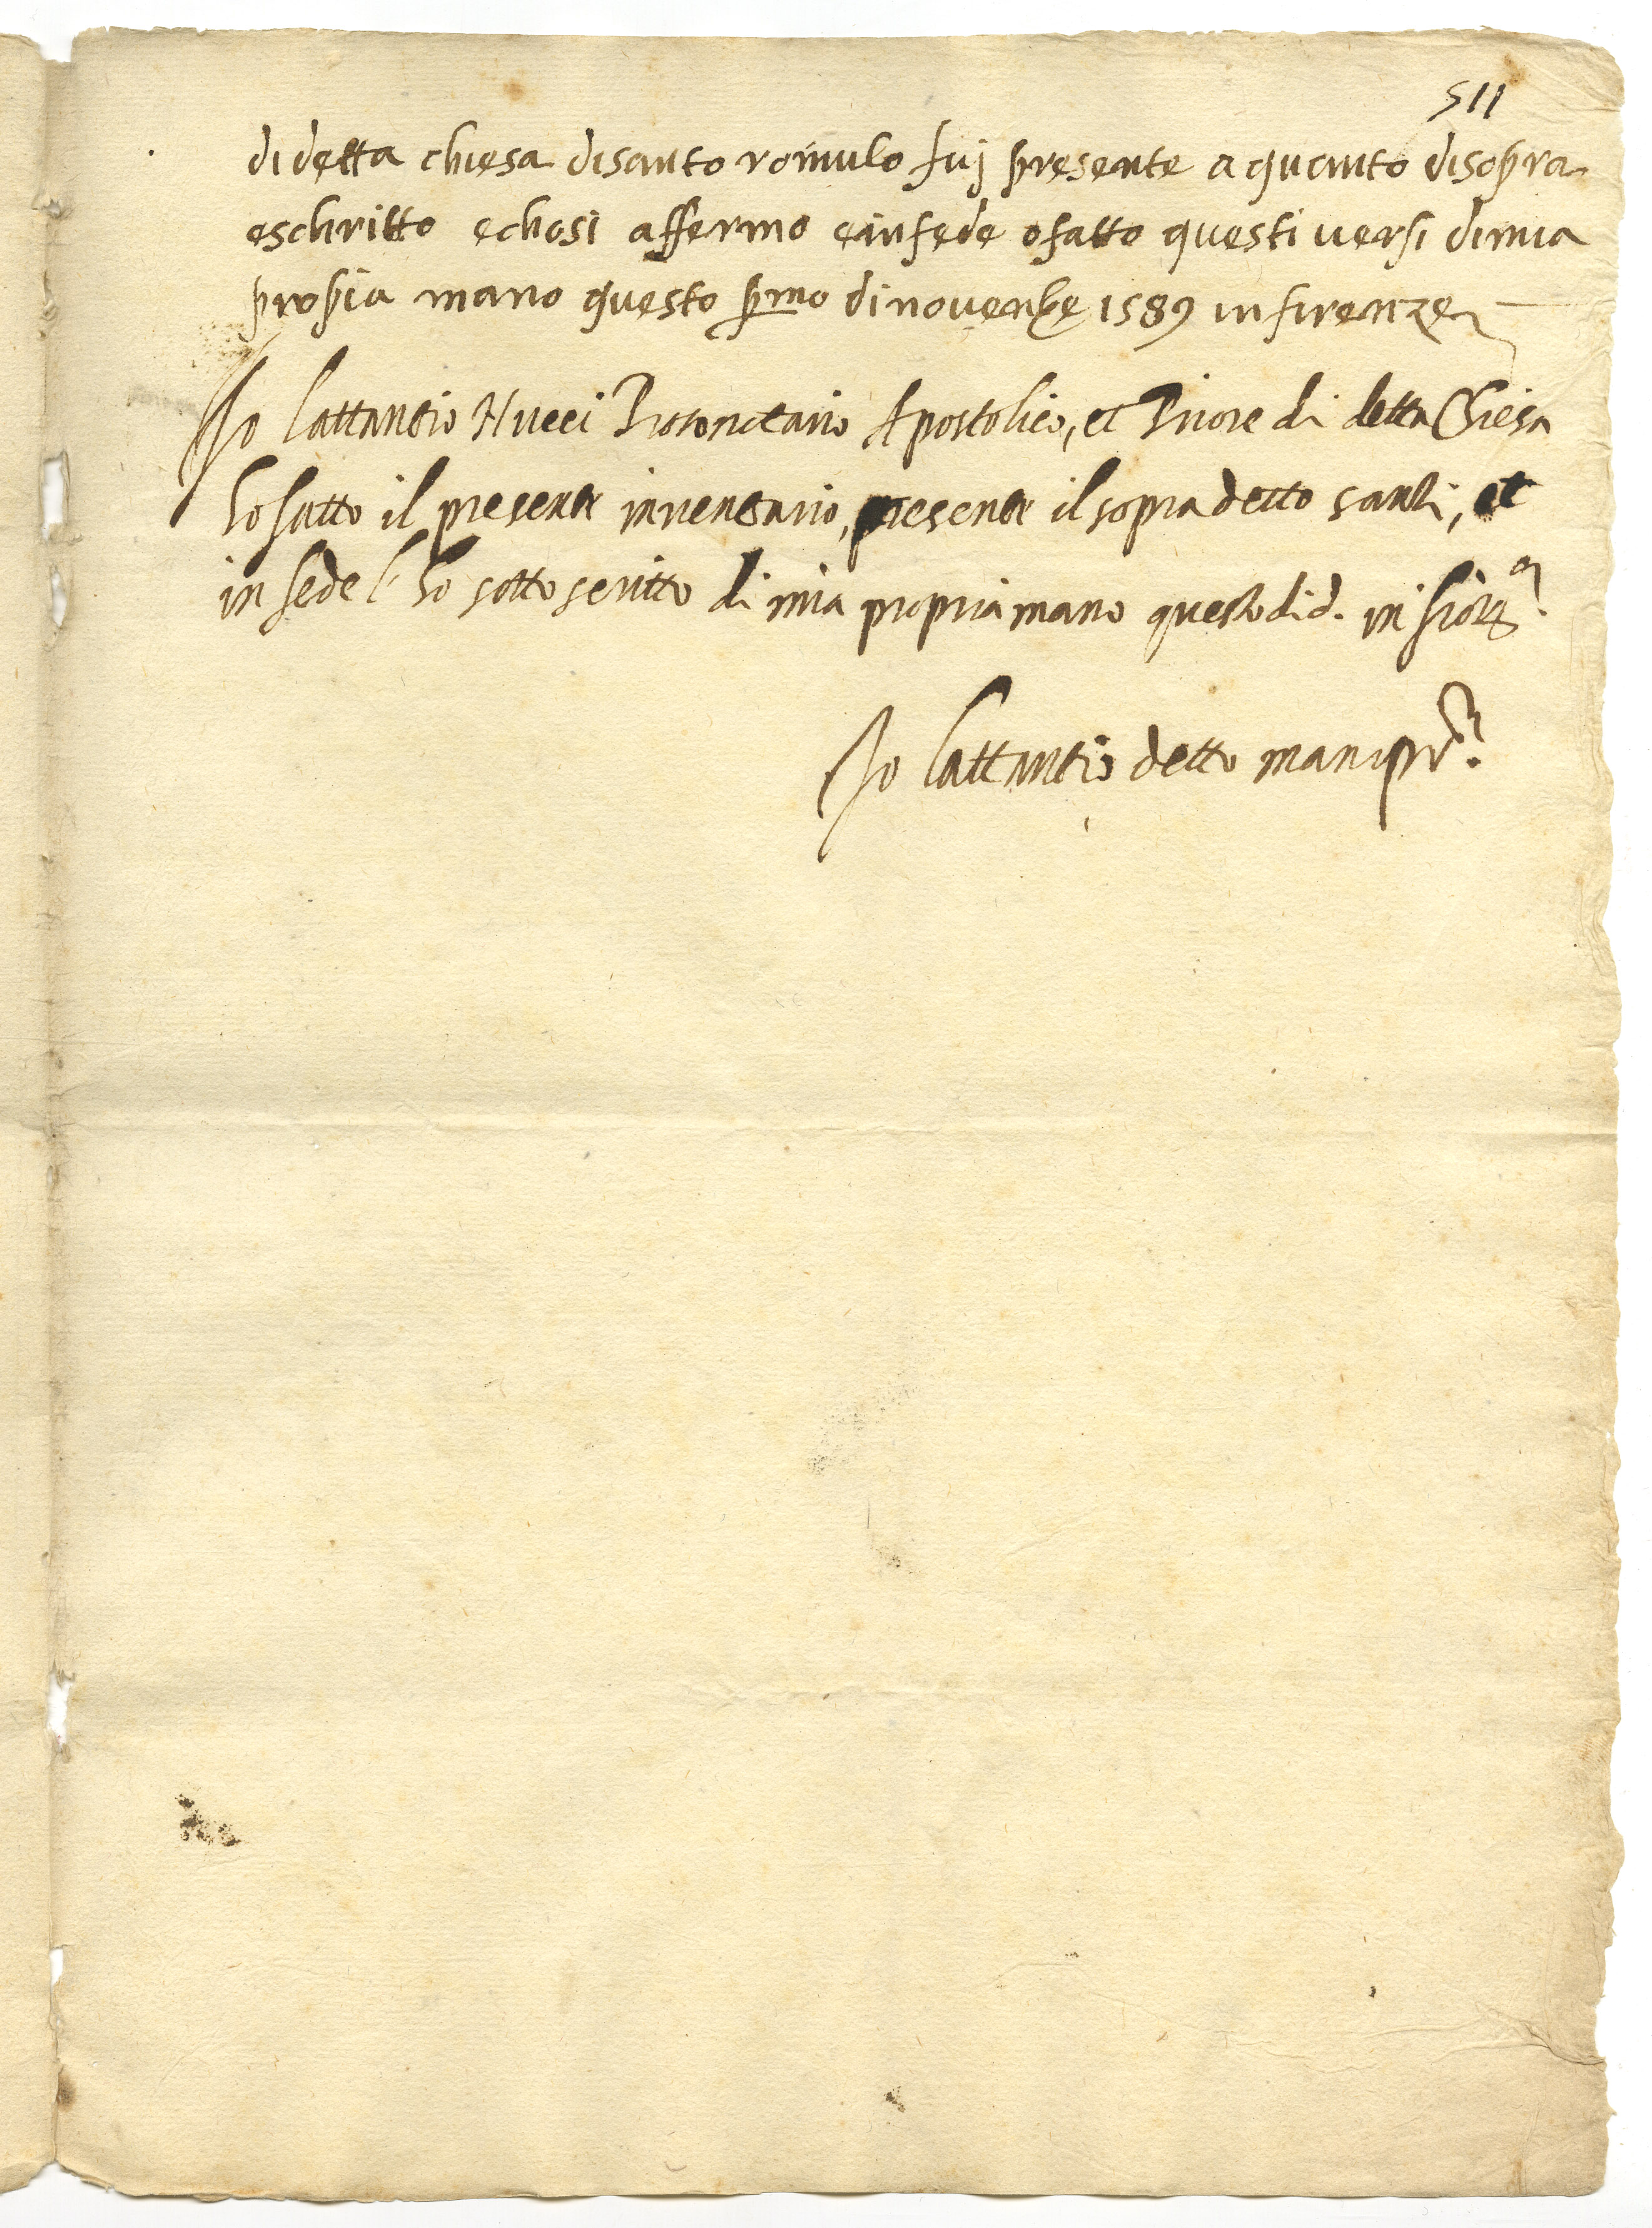 511
di detta chiesa disanto romulo fuj presente a quanto disopra
eschritto echosi affermo einfede ofatto questi versi dimia
propia mano questo pmo di novenbe 1589 in firenze
Jo Lattantio Nucci Protonotario Apostolico, et Priore di detta Chiesa
ho fatto il presente inventario, presente il sopradetto santi, et
in fede l'ho sottoscritto di mia propria mano questo di d. in fiorza
Jo Lattantio detto manu pra